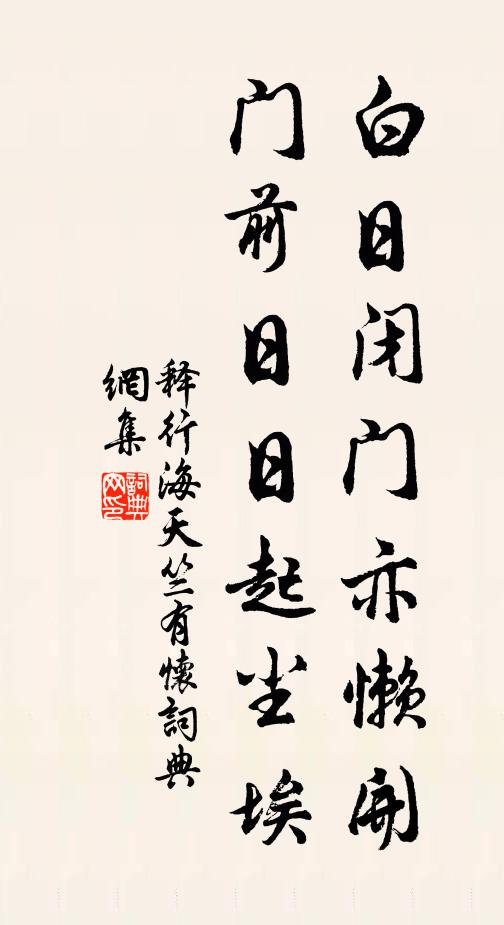 白日闭门亦懒开
门前日日起尘埃
释行海天竺有懷詞典
網集
詞典
网印